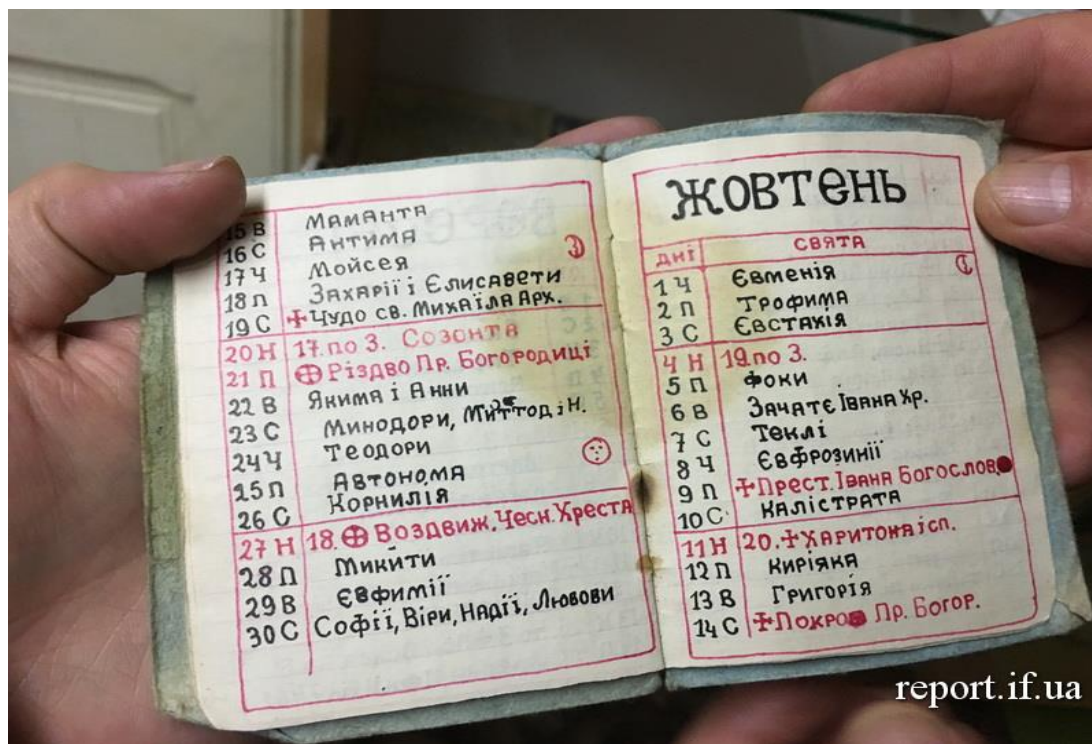 15 В Маманта
16 С Антима
17 Ч Мойсея
18 П Захарії і Єлисавети
19 С Чудо св. Михаїла Арх.
20 Н 17. по З. Созонта
21 П Різдво Пр. Богородиці
22 В Якима і Анни
23 С Минодори, Митрод і Н.
24 Ч Теодори
25 П Автонома
26 С Корнилія
27 Н 18. Воздвиж. Чесн. Хреста
28 П Микити
29 В Євфимії
30 С Софії, Віри, Надії, Любови
ЖОВТЕНЬ
ДНІ СВЯТА
1 Ч Євменія
2 П Трофима
3 С Євстахія
4 Н 19. по З.
5 П Фоки
6 В Зачатє Івана Хр.
7 С Теклі
8 Ч Євфрозинії
9 П Прест. Івана Богослов.
10 С Калістрата
11 Н 20. Харитона ісп.
12 П Киріяка
13 В Григорія
14 С Покров Пр. Богор.
report.if.ua